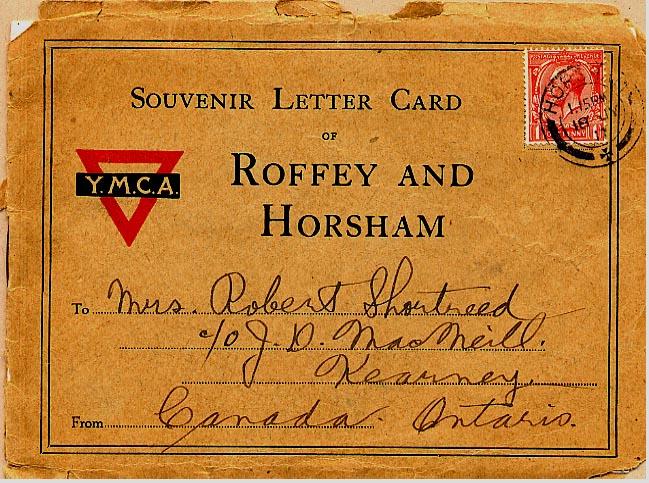 SOUVENIR LETTER CARD
OF
ROFFEY AND
HORSHAM
Y.M.C.A.
To Mrs. Robert Shortreed
c/o J. D. MacNeill.
Kearney
From Canada. Ontario.
POSTAGE REVENUE
HOR
1.15 PM
18